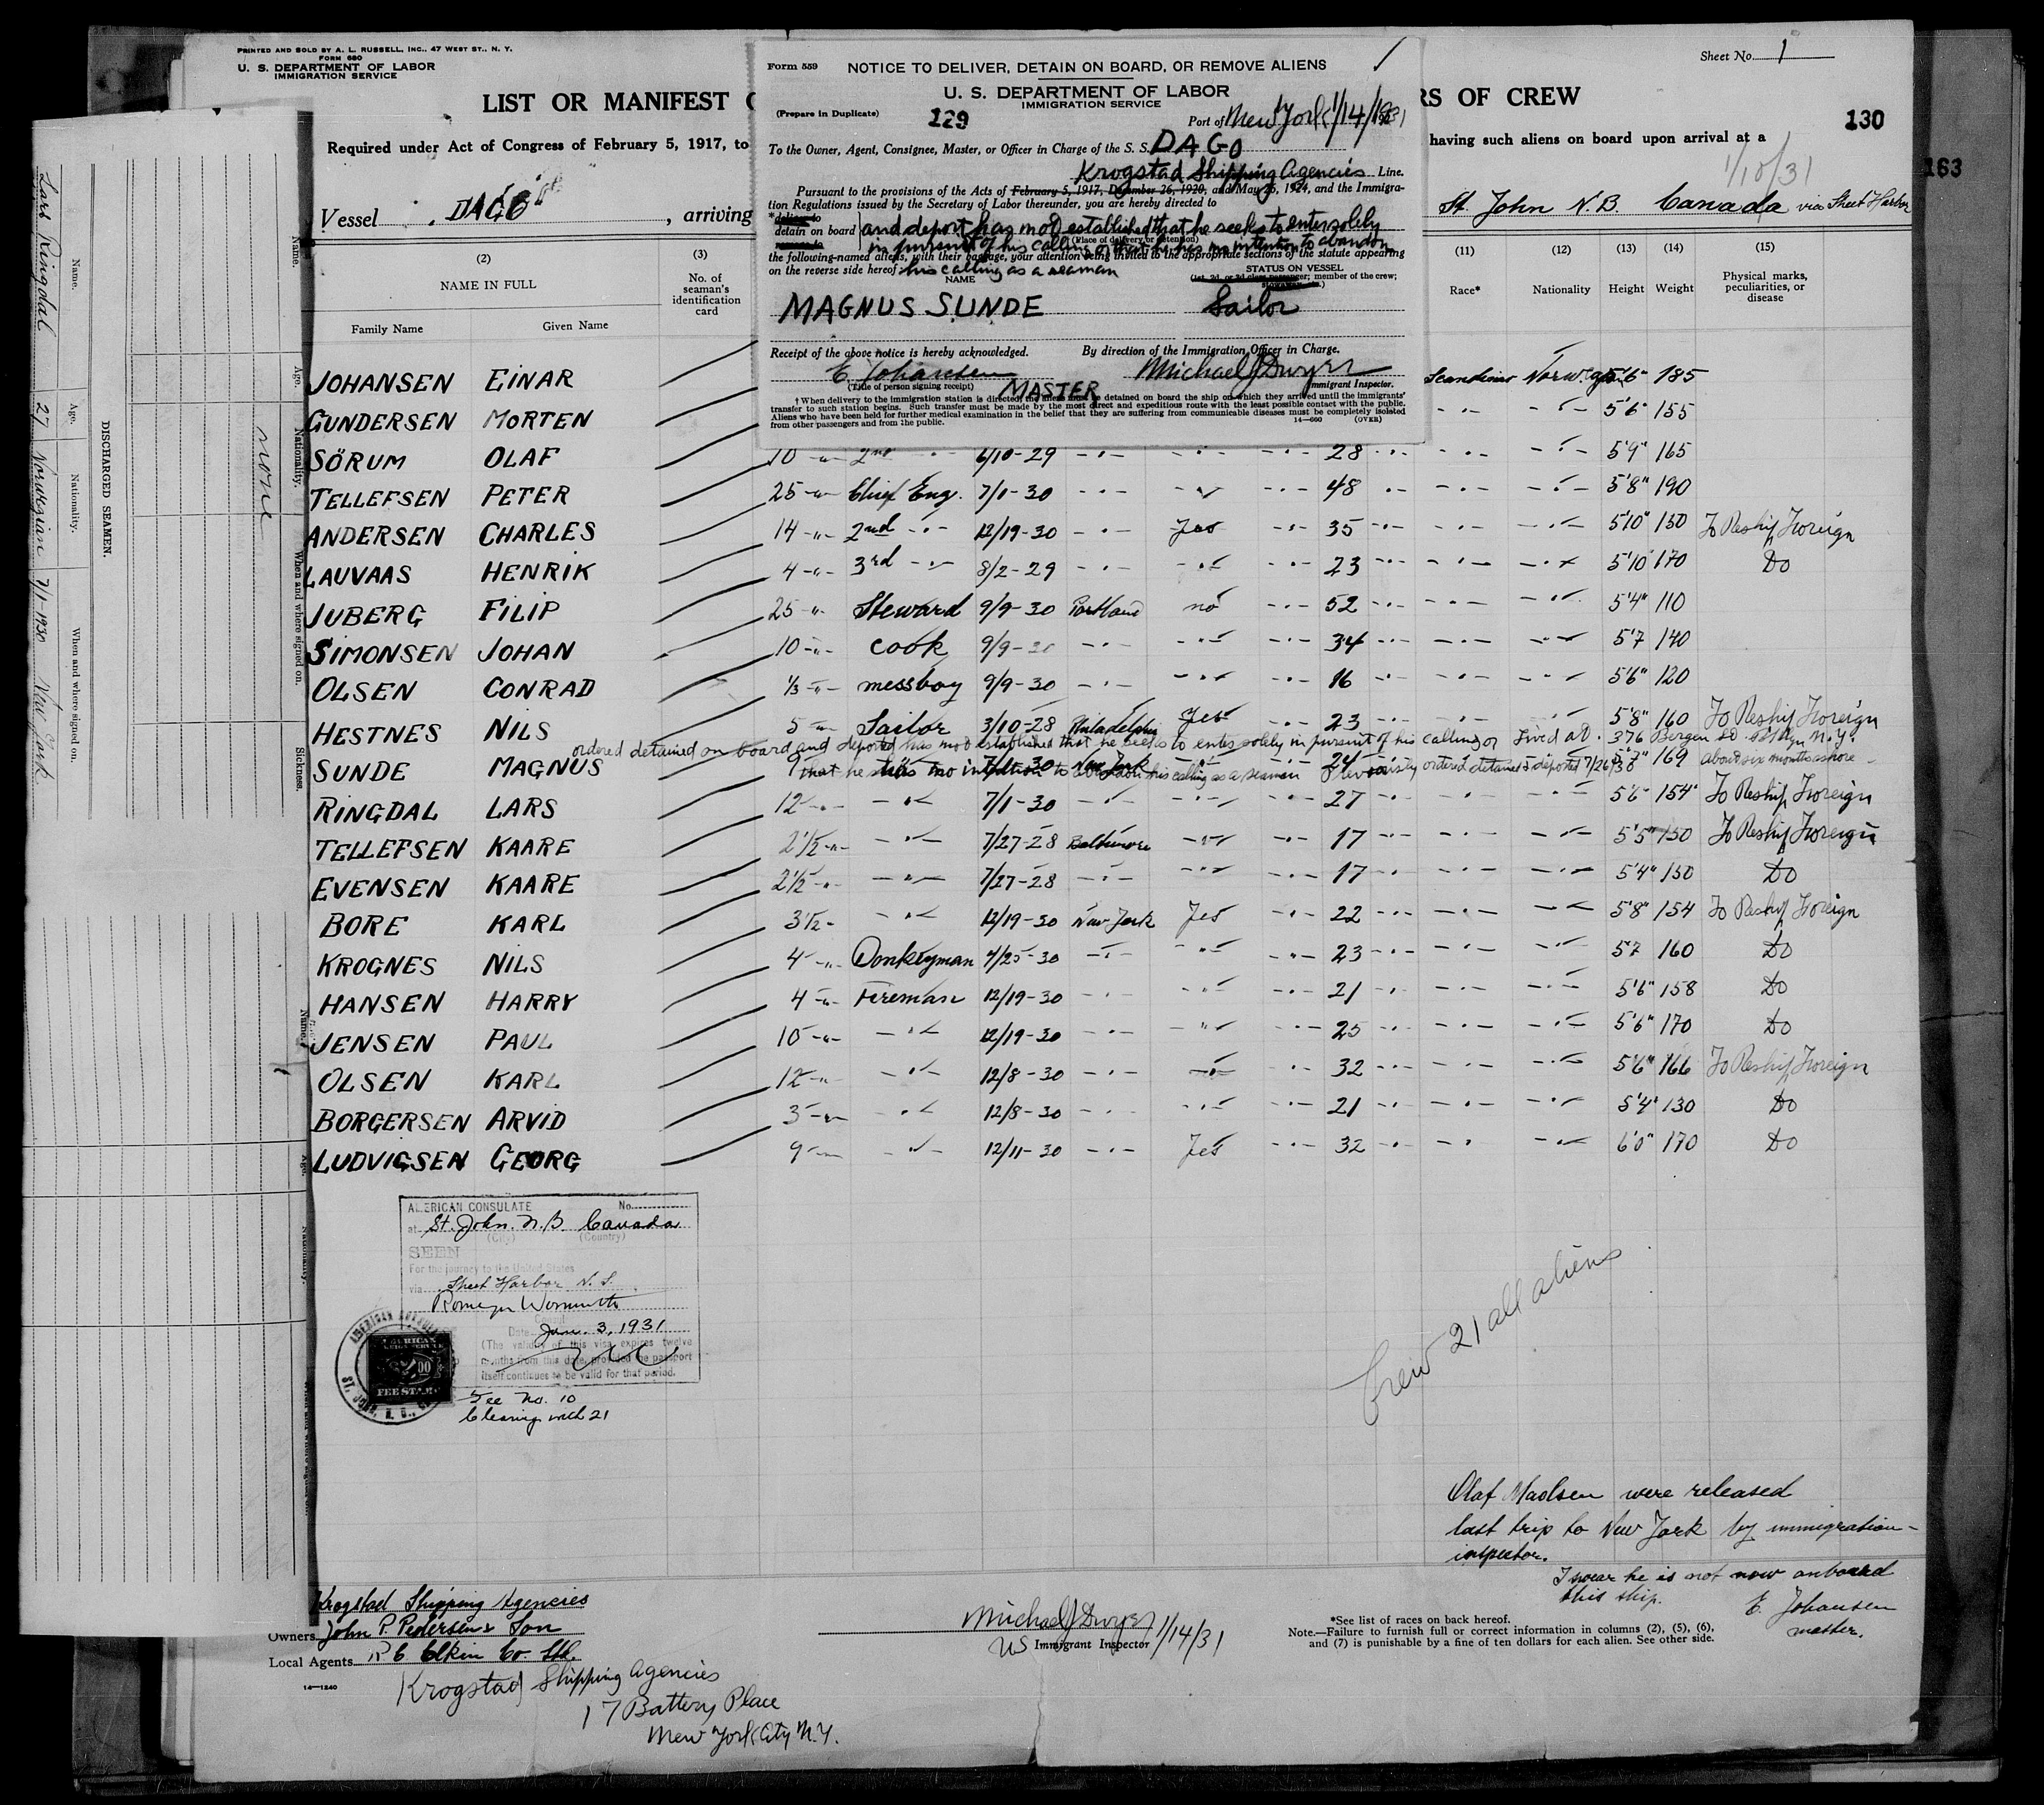 PRINTED AND SOLD BY A. L. RUSSELL, INC., 47 WEST ST., N. Y.
FORM 680
U. S. DEPARTMENT OF LABOR
IMMIGRATION SERVICE
Sheet No. 1
LIST OR MANIFEST O
RS OF CREW
130
163
Required under Act of Congress of February 5, 1917, to
having such aliens on board upon arrival at a
1/10/31
Vessel DAGO , arriving
St John N.B. Canada via Sheet Harbor
Form 559 NOTICE TO DELIVER, DETAIN ON BOARD, OR REMOVE ALIENS
U. S. DEPARTMENT OF LABOR
IMMIGRATION SERVICE
(Prepare in Duplicate) 129 Port of New York 1/14/1931
To the Owner, Agent, Consignee, Master, or Officer in Charge of the S. S. DAGO
Krogstad Shipping Agencies Line.
Pursuant to the provisions of the Acts of February 5, 1917, December 26, 1920, and May 26, 1924, and the Immigra-
tion Regulations issued by the Secretary of Labor thereunder, you are hereby directed to
*deliver to
detain on board and deport has not established that he seeks to enter solely
remove to in pursuit of his calling or that he has no intention to abandon
(Place of delivery or detention)
the following-named aliens, with their baggage, your attention being invited to the appropriate sections of the statute appearing
on the reverse side hereof his calling as a seaman
NAME
STATUS ON VESSEL
(1st, 2d, or 3d class passenger; member of the crew;
MAGNUS SUNDE Sailor
Receipt of the above notice is hereby acknowledged. By direction of the Immigration Officer in Charge.
E Johansen Michael J Dwyer
(Title of person signing receipt) MASTER Immigrant Inspector.
† When delivery to the immigration station is directed, the aliens must be detained on board the ship on which they arrived until the immigrants'
transfer to such station begins. Such transfer must be made by the most direct and expeditious route with the least possible contact with the public.
Aliens who have been held for further medical examination in the belief that they are suffering from communicable diseases must be completely isolated
from other passengers and from the public. 14—660 (OVER)
(2) (3) (11) (12) (13) (14) (15)
NAME IN FULL No. of seaman's identification card Race* Nationality Height Weight Physical marks, peculiarities, or disease
Family Name Given Name
JOHANSEN EINAR Scandinav Norwegian 5'6" 185
GUNDERSEN MORTEN 5'6" 155
SÖRUM OLAF 10 2nd 6/10-29 28 5'9" 165
TELLEFSEN PETER 25 Chief Eng. 7/1-30 48 5'8" 190
ANDERSEN CHARLES 14 2nd 12/19-30 Yes 35 5'10" 150 To Reship Foreign
LAUVAAS HENRIK 4 3rd 8/2-29 23 5'10 170 Do
JUBERG FILIP 25 Steward 9/9-30 Portland no 52 5'4" 110
SIMONSEN JOHAN 10 cook 9/9-30 34 5'7 140
OLSEN CONRAD 1/3 messboy 9/9-30 16 5'6" 120
HESTNES NILS 5 Sailor 3/10-28 Philadelphia Yes 23 5'8" 160 To Reship Foreign
ordered detained on board and deported has not established that he seeks to enter solely in pursuit of his calling or Lived at 376 Bergen St. Bklyn N.Y.
SUNDE MAGNUS 9 7/1-30 New York 24 5'7" 169 about six months ashore
that he has no intention to abandon his calling as a seaman Previously ordered detained & deported 7/26/30
RINGDAL LARS 12 7/1-30 27 5'6" 154 To Reship Foreign
TELLEFSEN KAARE 2 1/2 7/27-28 Baltimore 17 5'5" 150 To Reship Foreign
EVENSEN KAARE 2 1/2 7/27-28 17 5'4" 150 Do
BORE KARL 3 1/2 12/19-30 New York Yes 22 5'8" 154 To Reship Foreign
KROGNES NILS 4 Donkeyman 4/25-30 23 5'7 160 Do
HANSEN HARRY 4 Fireman 12/19-30 21 5'6" 158 Do
JENSEN PAUL 10 12/19-30 25 5'6" 170 Do
OLSEN KARL 12 12/8-30 32 5'6" 166 To Reship Foreign
BORGERSEN ARVID 3 12/8-30 21 5'4" 130 Do
LUDVIGSEN GEORG 9 12/11-30 Yes 32 6'0" 170 Do
AMERICAN CONSULATE No.
at St. John. N.B. Canada
(City) (Country)
SEEN
For the journey to the United States
via Sheet Harbor N. S.
Romeyn Wormuth
Consul
Date Jan. 3, 1931
(The validity of this visa expires twelve
months from this date, provided the passport
itself continues to be valid for that period.
FEE STAMP
Fee No. 10
Clearing with 21
Crew 21 all aliens
Olaf Madsen were released
last trip to New York by immigration-
inspector.
I swear he is not now onboard
this ship.
E. Johansen
master.
Krogstad Shipping Agencies
Owners John P. Pedersen & Son
Local Agents R C Elkin Co. Ltd.
14—1240
Krogstad Shipping Agencies
17 Battery Place
New York City N.Y.
Michael J Dwyer
US Immigrant Inspector 1/14/31
*See list of races on back hereof.
Note.—Failure to furnish full or correct information in columns (2), (5), (6),
and (7) is punishable by a fine of ten dollars for each alien. See other side.
DISCHARGED SEAMEN.
Name. Age. Nationality. When and where signed on.
Lars Ringdal 27 Norwegian 7/1-1930 New York.
Name. Age. Nationality. When and where signed on. Sickness.
none